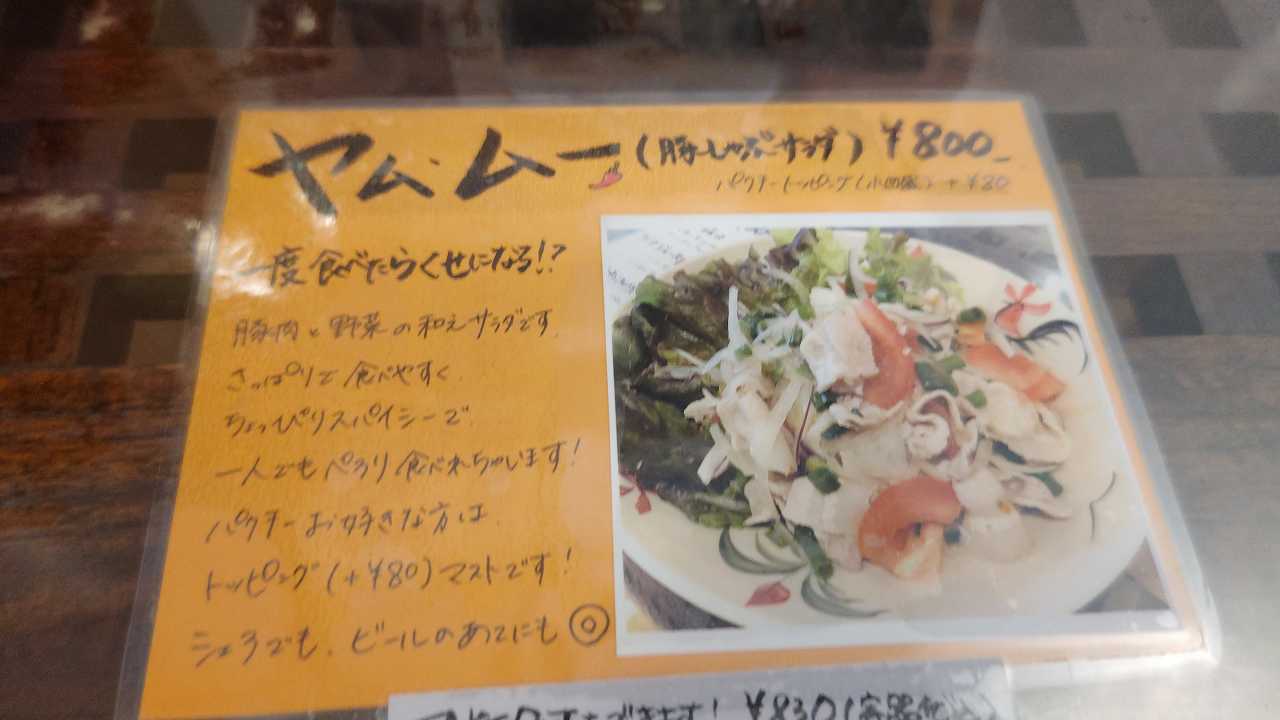 ヤム・ムー(豚しゃぶサラダ) ¥800_
パクチートッピング(小皿盛) +¥80
一度食べたらくせになる!?
豚肉と野菜の和えサラダです。
さっぱりで食べやすく、
ちょっぴりスパイシーで、
一人でもペろり食べれちゃいます!
パクチーお好きな方は、
トッピング(+¥80)マストです!
シェアでも、ビールのあてにも◎
できます! ¥830(容器